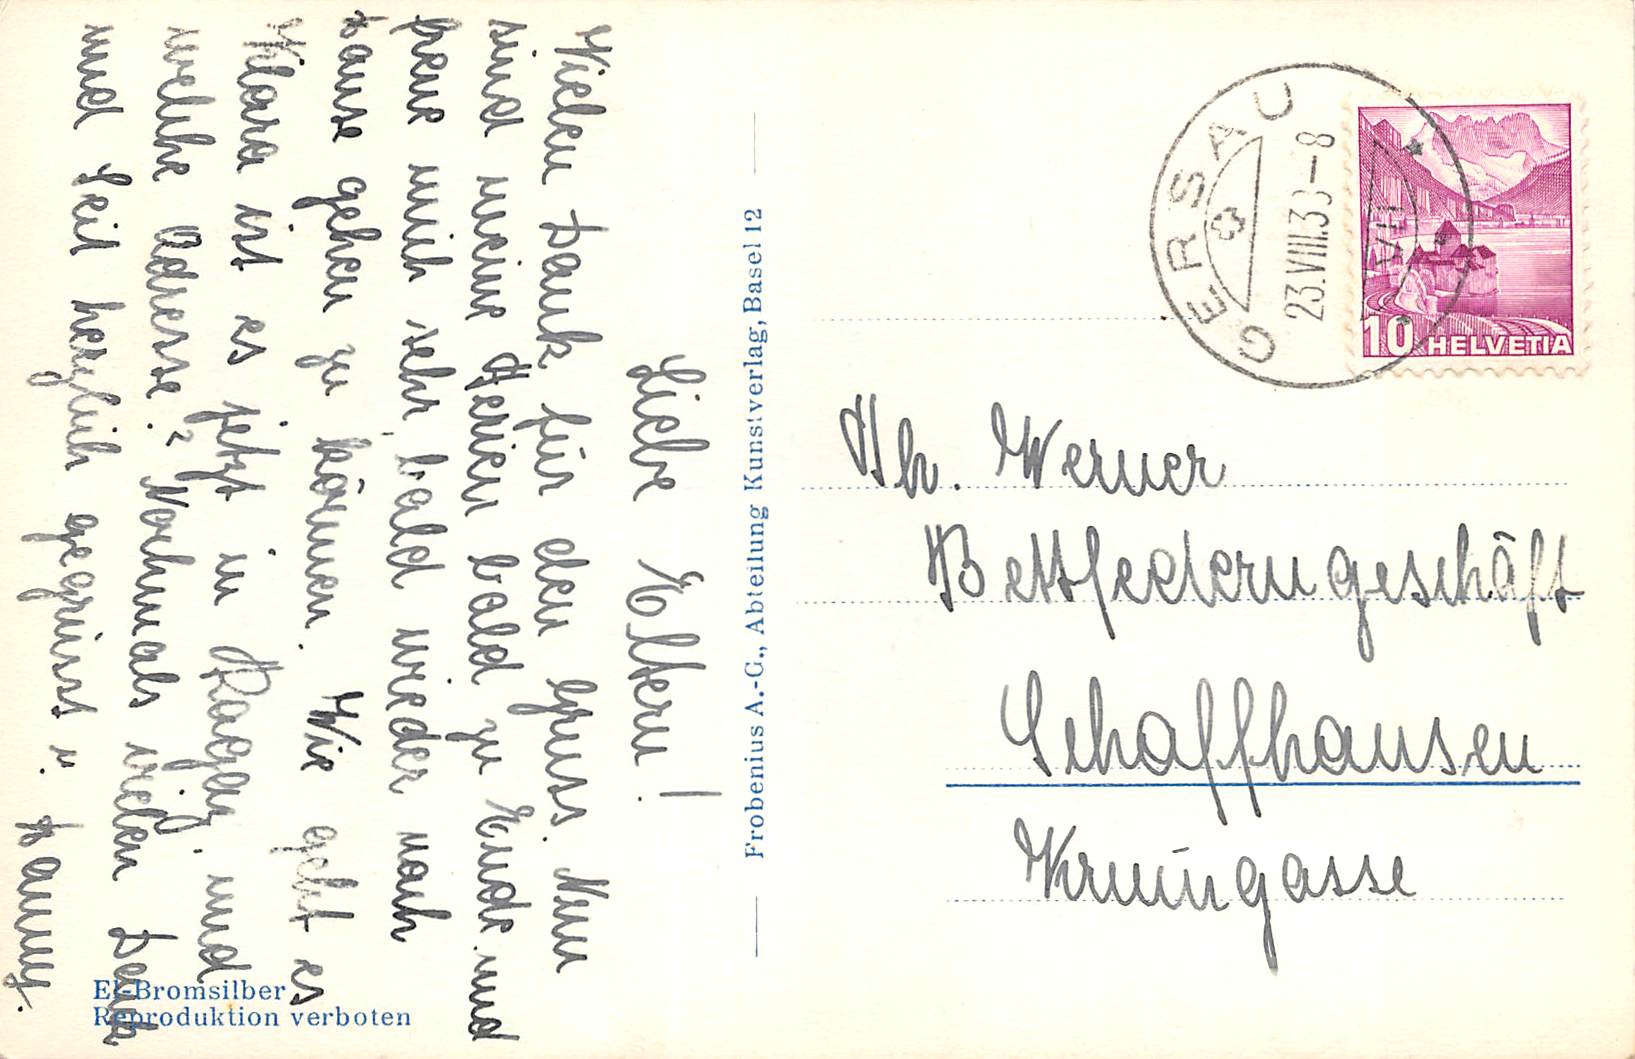 Liebe Eltern!
Vielen Dank für den Gruss. Nun
sind meine Ferien bald zu Ende und
freue mich sehr, bald wieder nach
Hause gehen zu können. Wie geht es
Klara ist es jetzt in Ragaz, und
welche Adresse? Nochmals vielen Dank
und Seit herzlich gegrüsst v. Hanny.
Ei-Bromsilber
Reproduktion verboten
Frobenius A.-G., Abteilung Kunstverlag, Basel 12
GERSAU
23.VII.3 -8
10 HELVETIA
Th. Werner
Bettfederngeschäft
Schaffhausen
Krumgasse